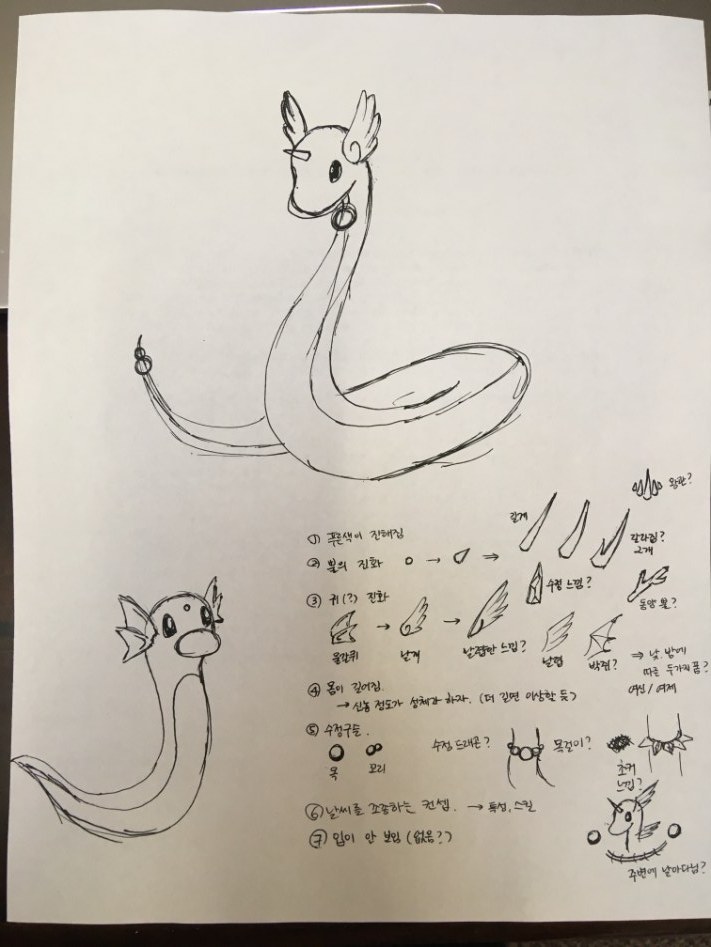 왕관?
① 푸른색이 진해짐
길게
갈라짐?
2개
② 뿔의 진화
수정 느낌?
동양 뿔?
③ 귀(?) 진화
물갈퀴
날개
날렵한 느낌?
날렵
박쥐?
⇒ 낮, 밤에
따라 두가지 폼?
여신/여제
④ 몸이 길어짐.
→ 신뇽 정도가 성체라 하자. (더 길면 이상할 듯)
⑤ 수정구슬.
목
꼬리
수정 드래곤?
목걸이?
초커
느낌?
⑥ 날씨를 조종하는 컨셉. → 특성, 스킬
⑦ 입이 안 보임 (없음?)
주변에 날아다님?